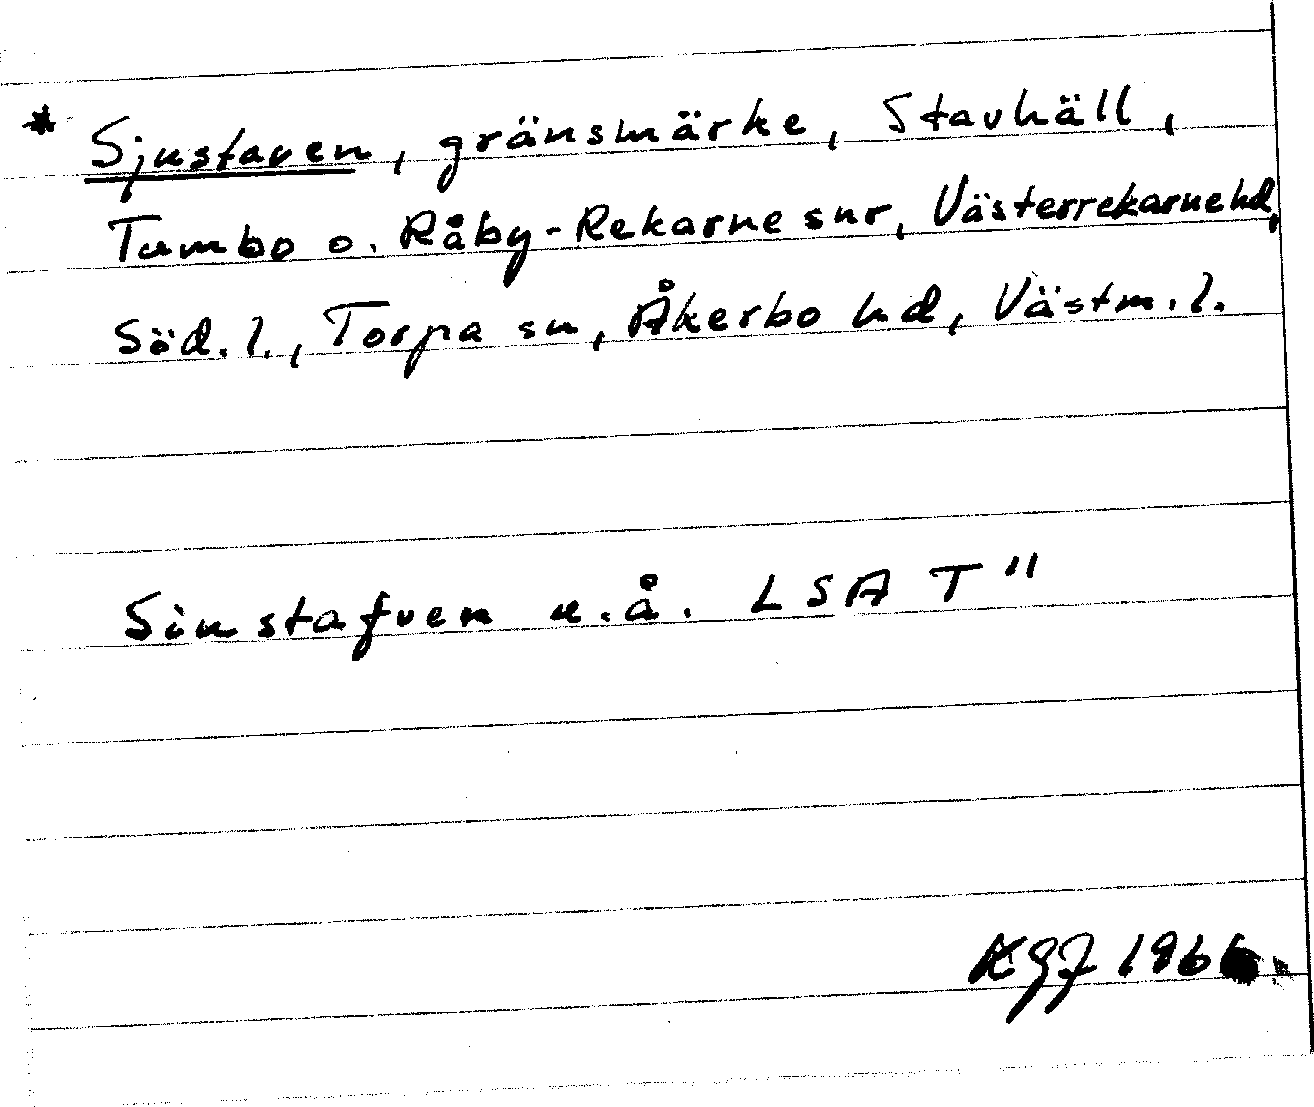 * Sjustaven, gränsmärke, Stavhäll,
Tumbo o. Råby-Rekarne snr, Västerrekarne hd,
Söd. l., Torpa sn, Åkerbo hd, Västm. l.
Siustafven u.å. LSA T"
KGJ 1966.